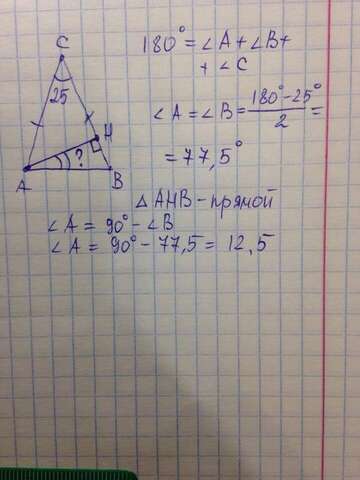 C
25
H
?
A
B
180° = ∠A + ∠B +
+ ∠C
∠A = ∠B = (180° - 25°)/2 =
= 77,5°
△AHB - прямой
∠A = 90° - ∠B
∠A = 90° - 77,5 = 12,5